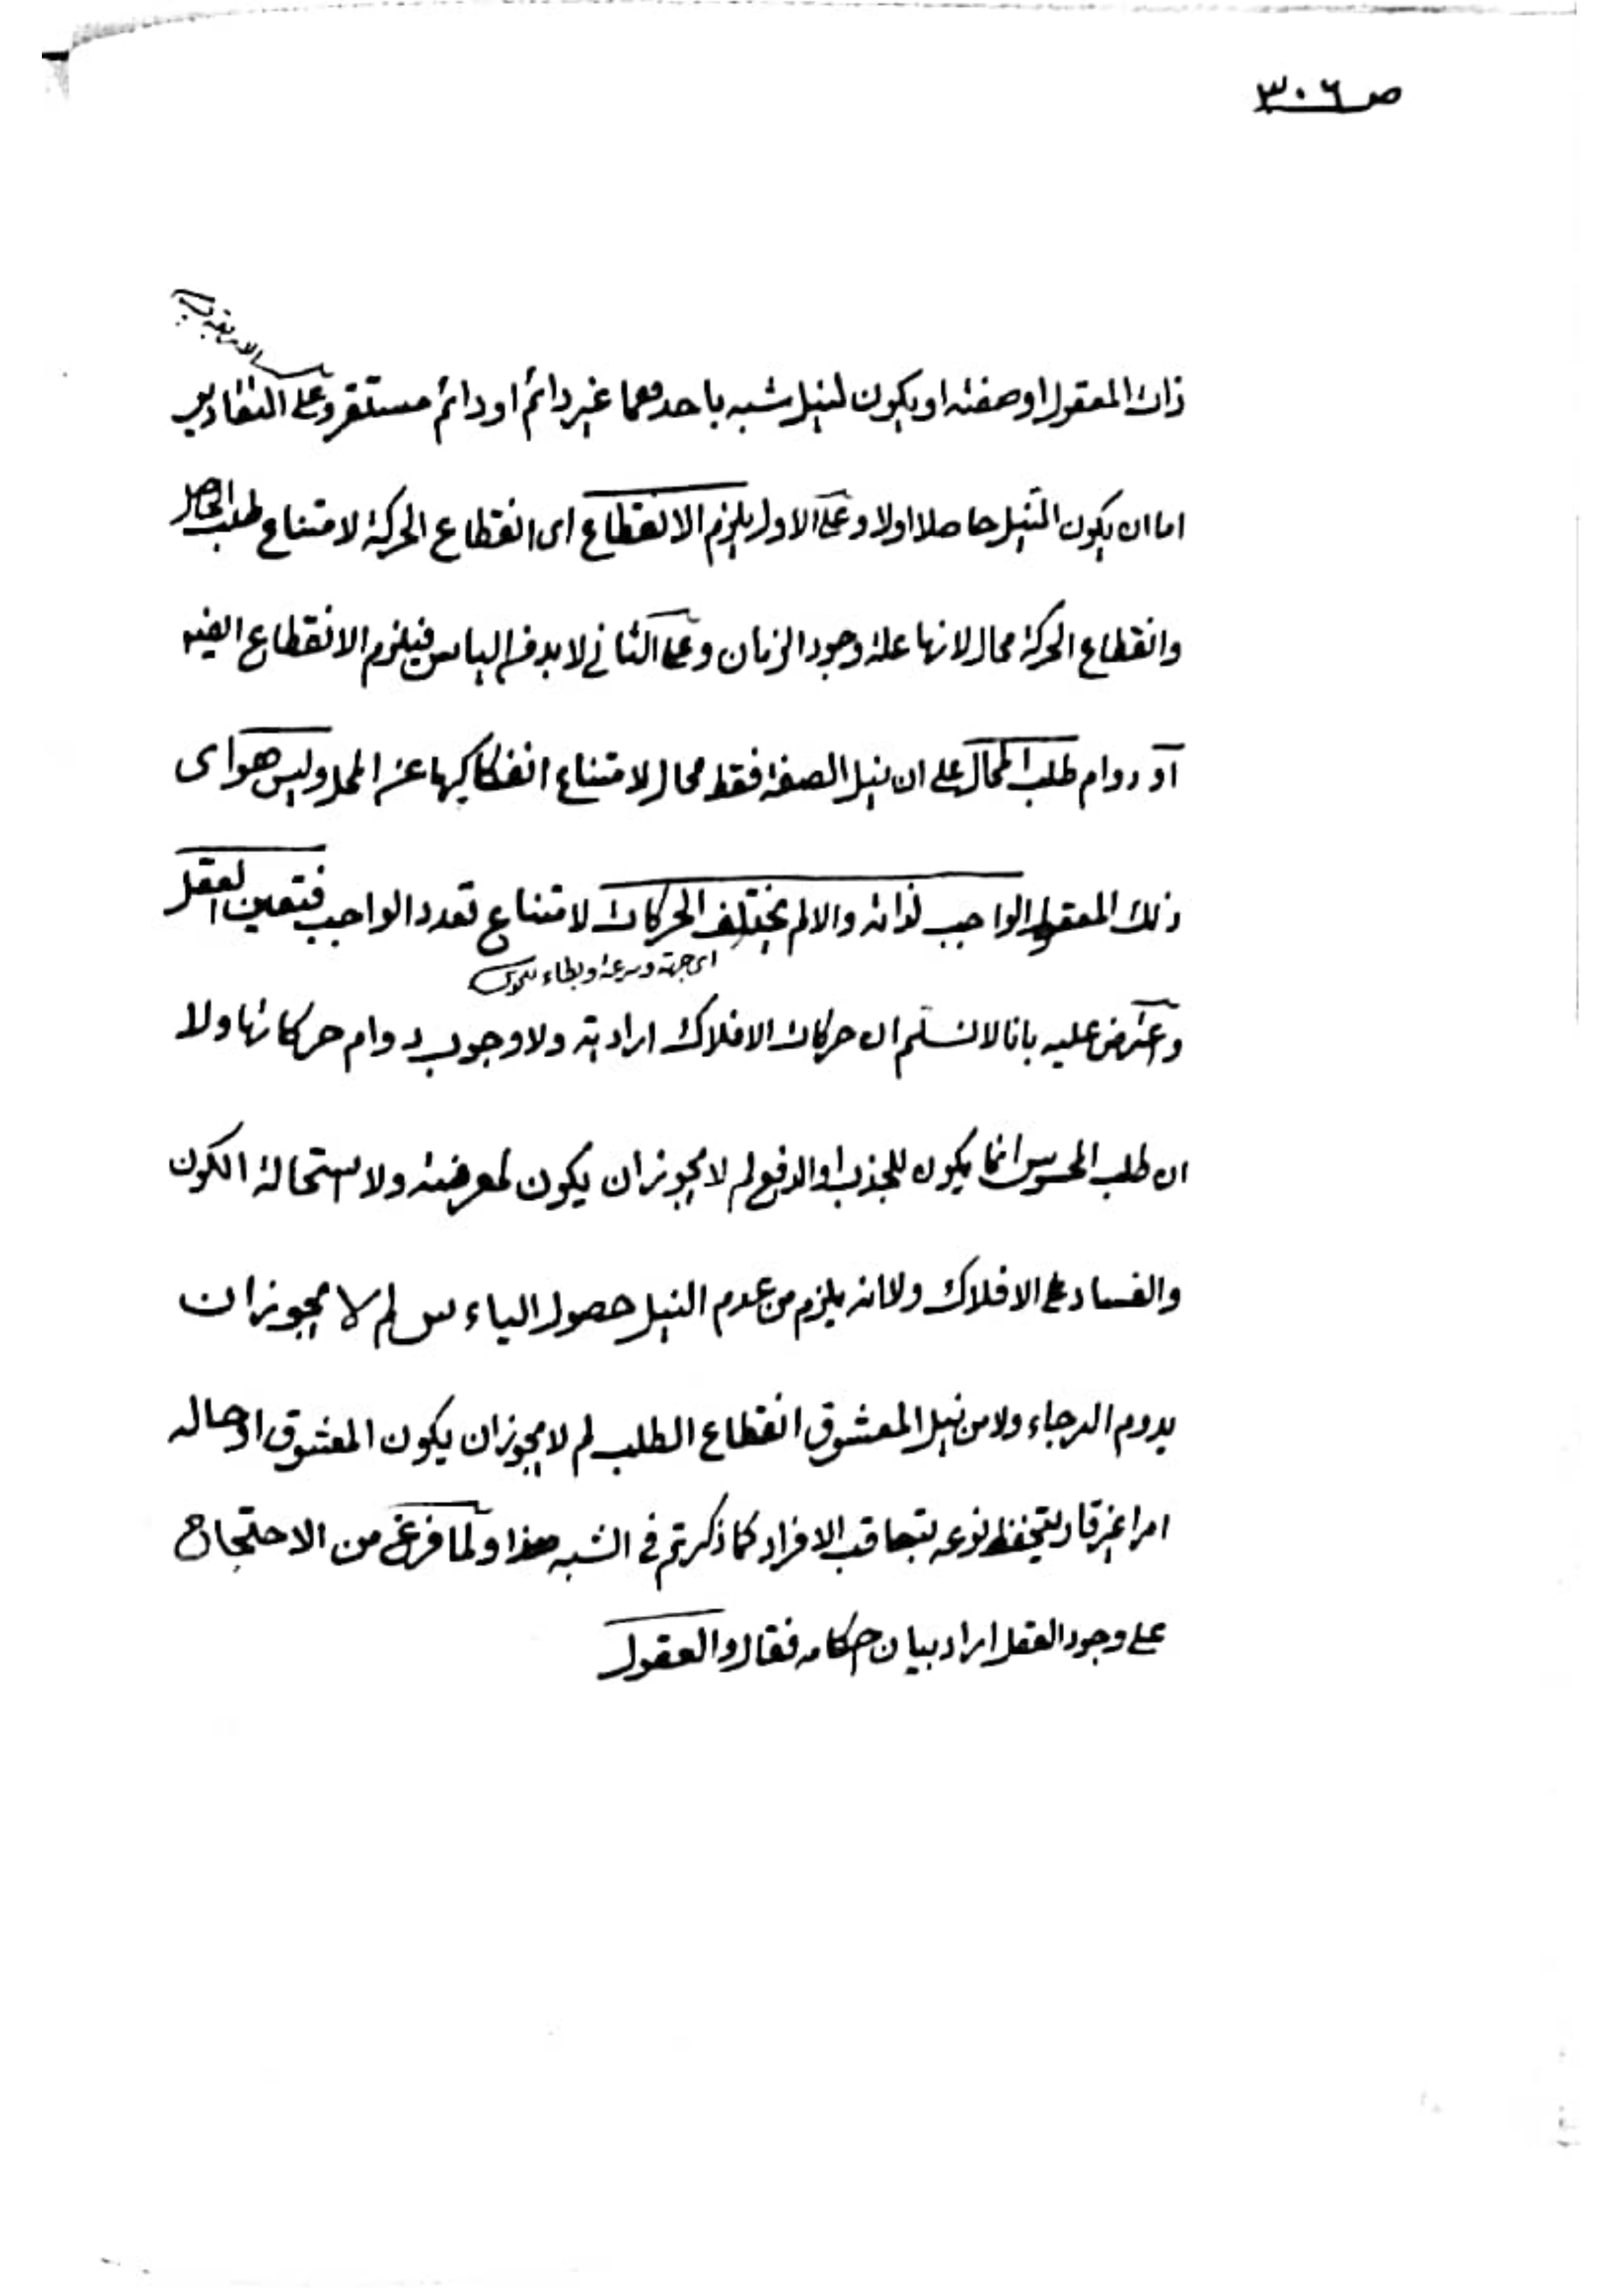 ص ٣٠٦
ذات المعقول او صفته او يكون لنيل شبه باحدهما غير دائم او دائم مستقر وعلى التقادير
اما ان يكون النيل حاصلا اولا وعلى الاول يلزم الانقطاع اى انقطاع الحركة لامتناع طلب الحاصل
وانقطاع الحركة محال لانها علة وجود الزمان وعلى الثانى لا بد من الياس فيلزم الانقطاع ايضا
او دوام طلب المحال على ان نيل الصفة فقط محال لامتناع انفكاكها عن المحل وليس هو اى
ذلك المعقول الواجب لذاته والا لم يختلف الحركات لامتناع تعدد الواجب فتعين العقل
اى جهة وسرعة وبطاء
واعترض عليه بانا لا نسلم ان حركات الافلاك ارادية ولا وجوب دوام حركاتها ولا
ان طلب المحسوس انما يكون للجذب او الدفع لم لا يجوز ان يكون لمعرفته ولا استحالة الكون
والفساد على الافلاك ولا انه يلزم من عدم النيل حصول الياءس لم لا يجوز ان
يدوم الرجاء ولا من نيل المعشوق انقطاع الطلب لم لا يجوز ان يكون المعشوق او حاله
امرا غير قار يتحفظ نوعه بتعاقب الافراد كما ذكرتم فى الشبه هذا ولما فرغ من الاحتجاج
على وجود العقل اراد بيان احكامه فقال والعقول